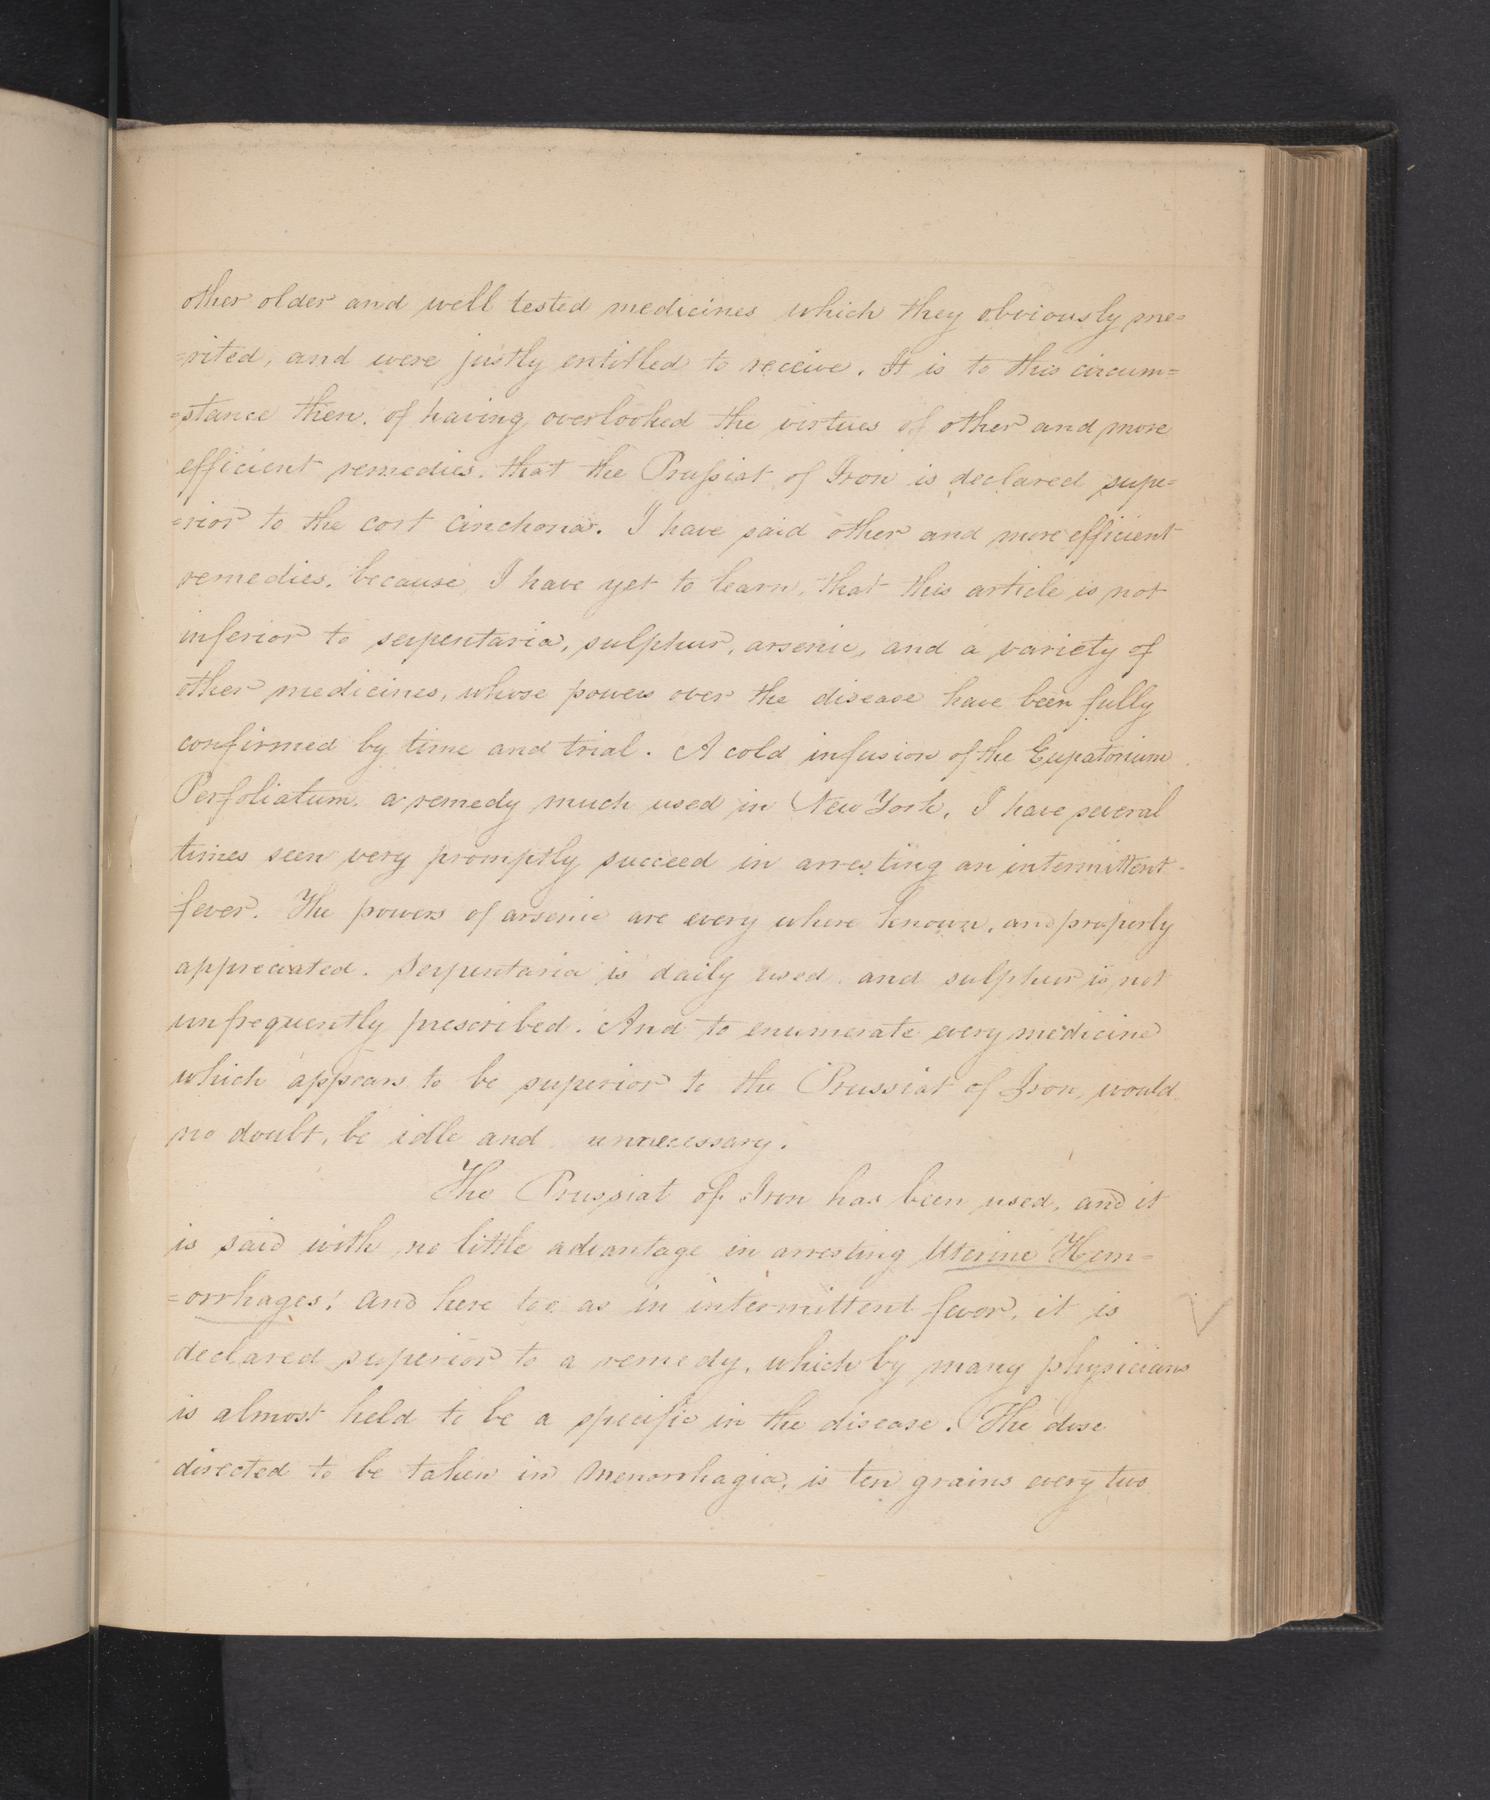 other older and well tested medicines which they obviously me=
=rited, and were justly entitled to receive. It is to this circum=
=stance then, of having overlooked the virtues of other and more
efficient remedies, that the Prussiat of Iron is declared supe=
=rior to the cort cinchona. I have said other and more efficient
remedies, because, I have yet to learn, that this article is not
inferior to serpentaria, sulphur, arsenic, and a variety of
other medicines, whose powers over the disease have been fully
confirmed by time and trial. A cold infusion of the Eupatorium
Perfoliatum, a remedy much used in New York, I have several
times seen very promptly succeed in arresting an intermittent
fever. The powers of arsenic are every where known, and properly
appreciated. Serpentaria is daily used, and sulphur is not
unfrequently prescribed. And to enumerate every medicine
which appears to be superior to the Prussiat of Iron, would
no doubt, be idle and unnecessary.
The Prussiat of Iron has been used, and it
is said with no little advantage in arresting Uterine Hem=
=orrhages! and here too as in intermittent fever, it is
declared superior to a remedy, which by many physicians
is almost held to be a specific in the disease. The dose
directed to be taken in Menorrhagia, is ten grains every two